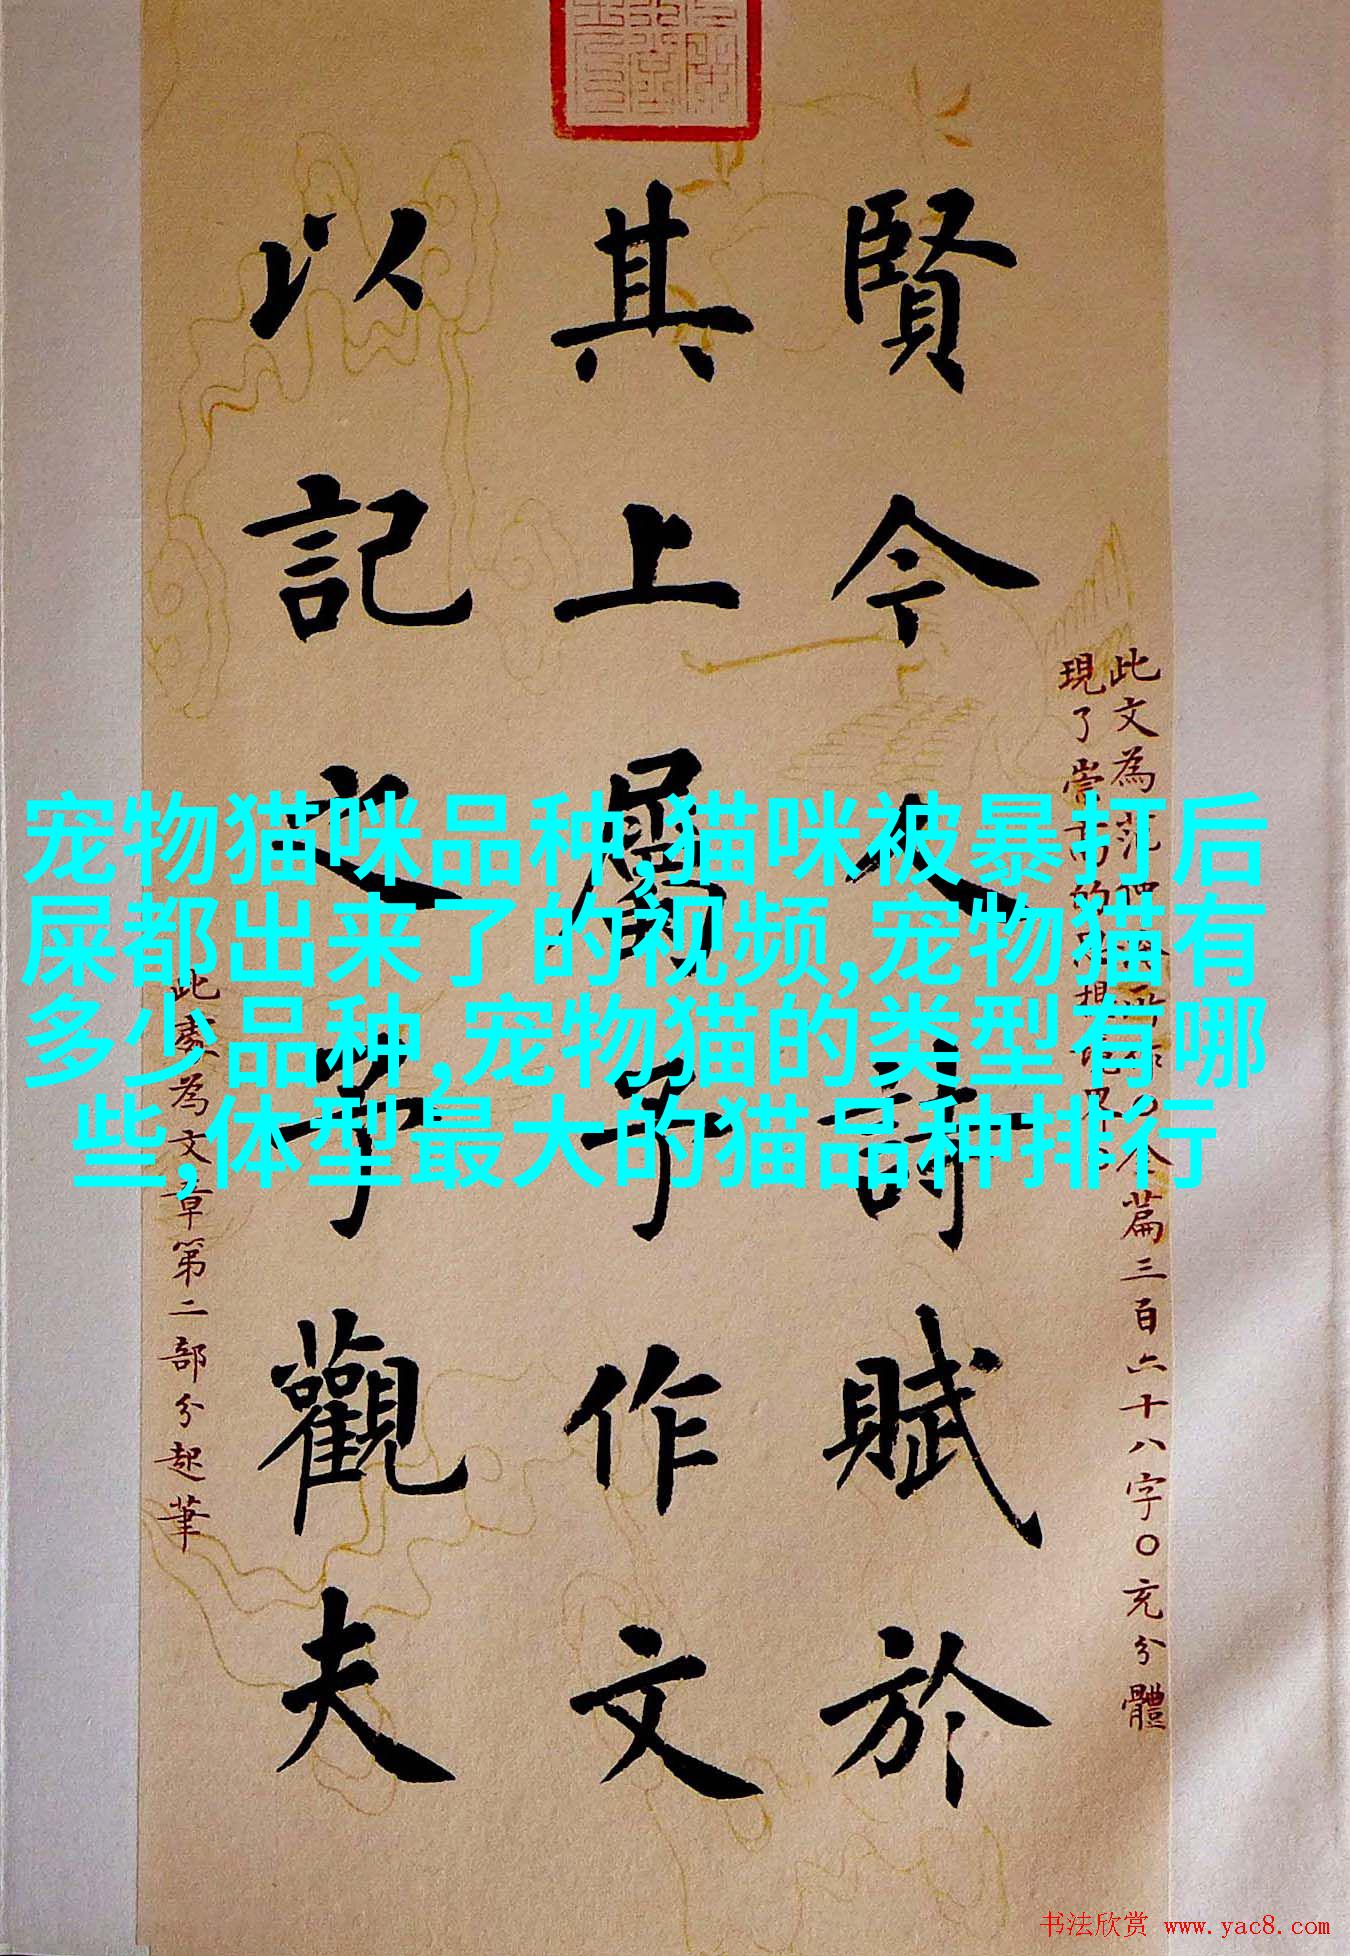 賢今人詩賦於
其上屬予作文
以記之予觀夫
此文為范仲淹所作全篇三百六十八字〇充分體
現了崇高的思想境界
此處為文章第二部分起筆
宠物猫咪品种,猫咪被暴打后
屎都出来了的视频,宠物猫有
多少品种,宠物猫的类型有哪
些,体型最大的猫品种排行
书法欣赏 www.yac8.com